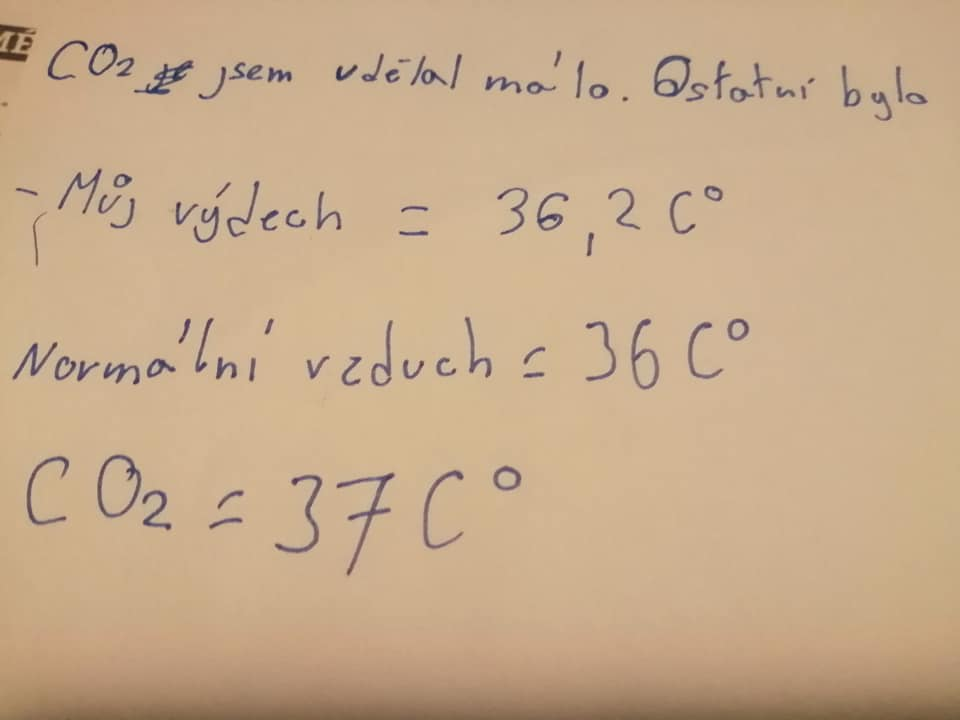 MÉ
CO2 jsem vdělal málo. Ostatní bylo
- Můj výdech = 36,2 C°
Normální vzduch = 36 C°
CO2 = 37 C°